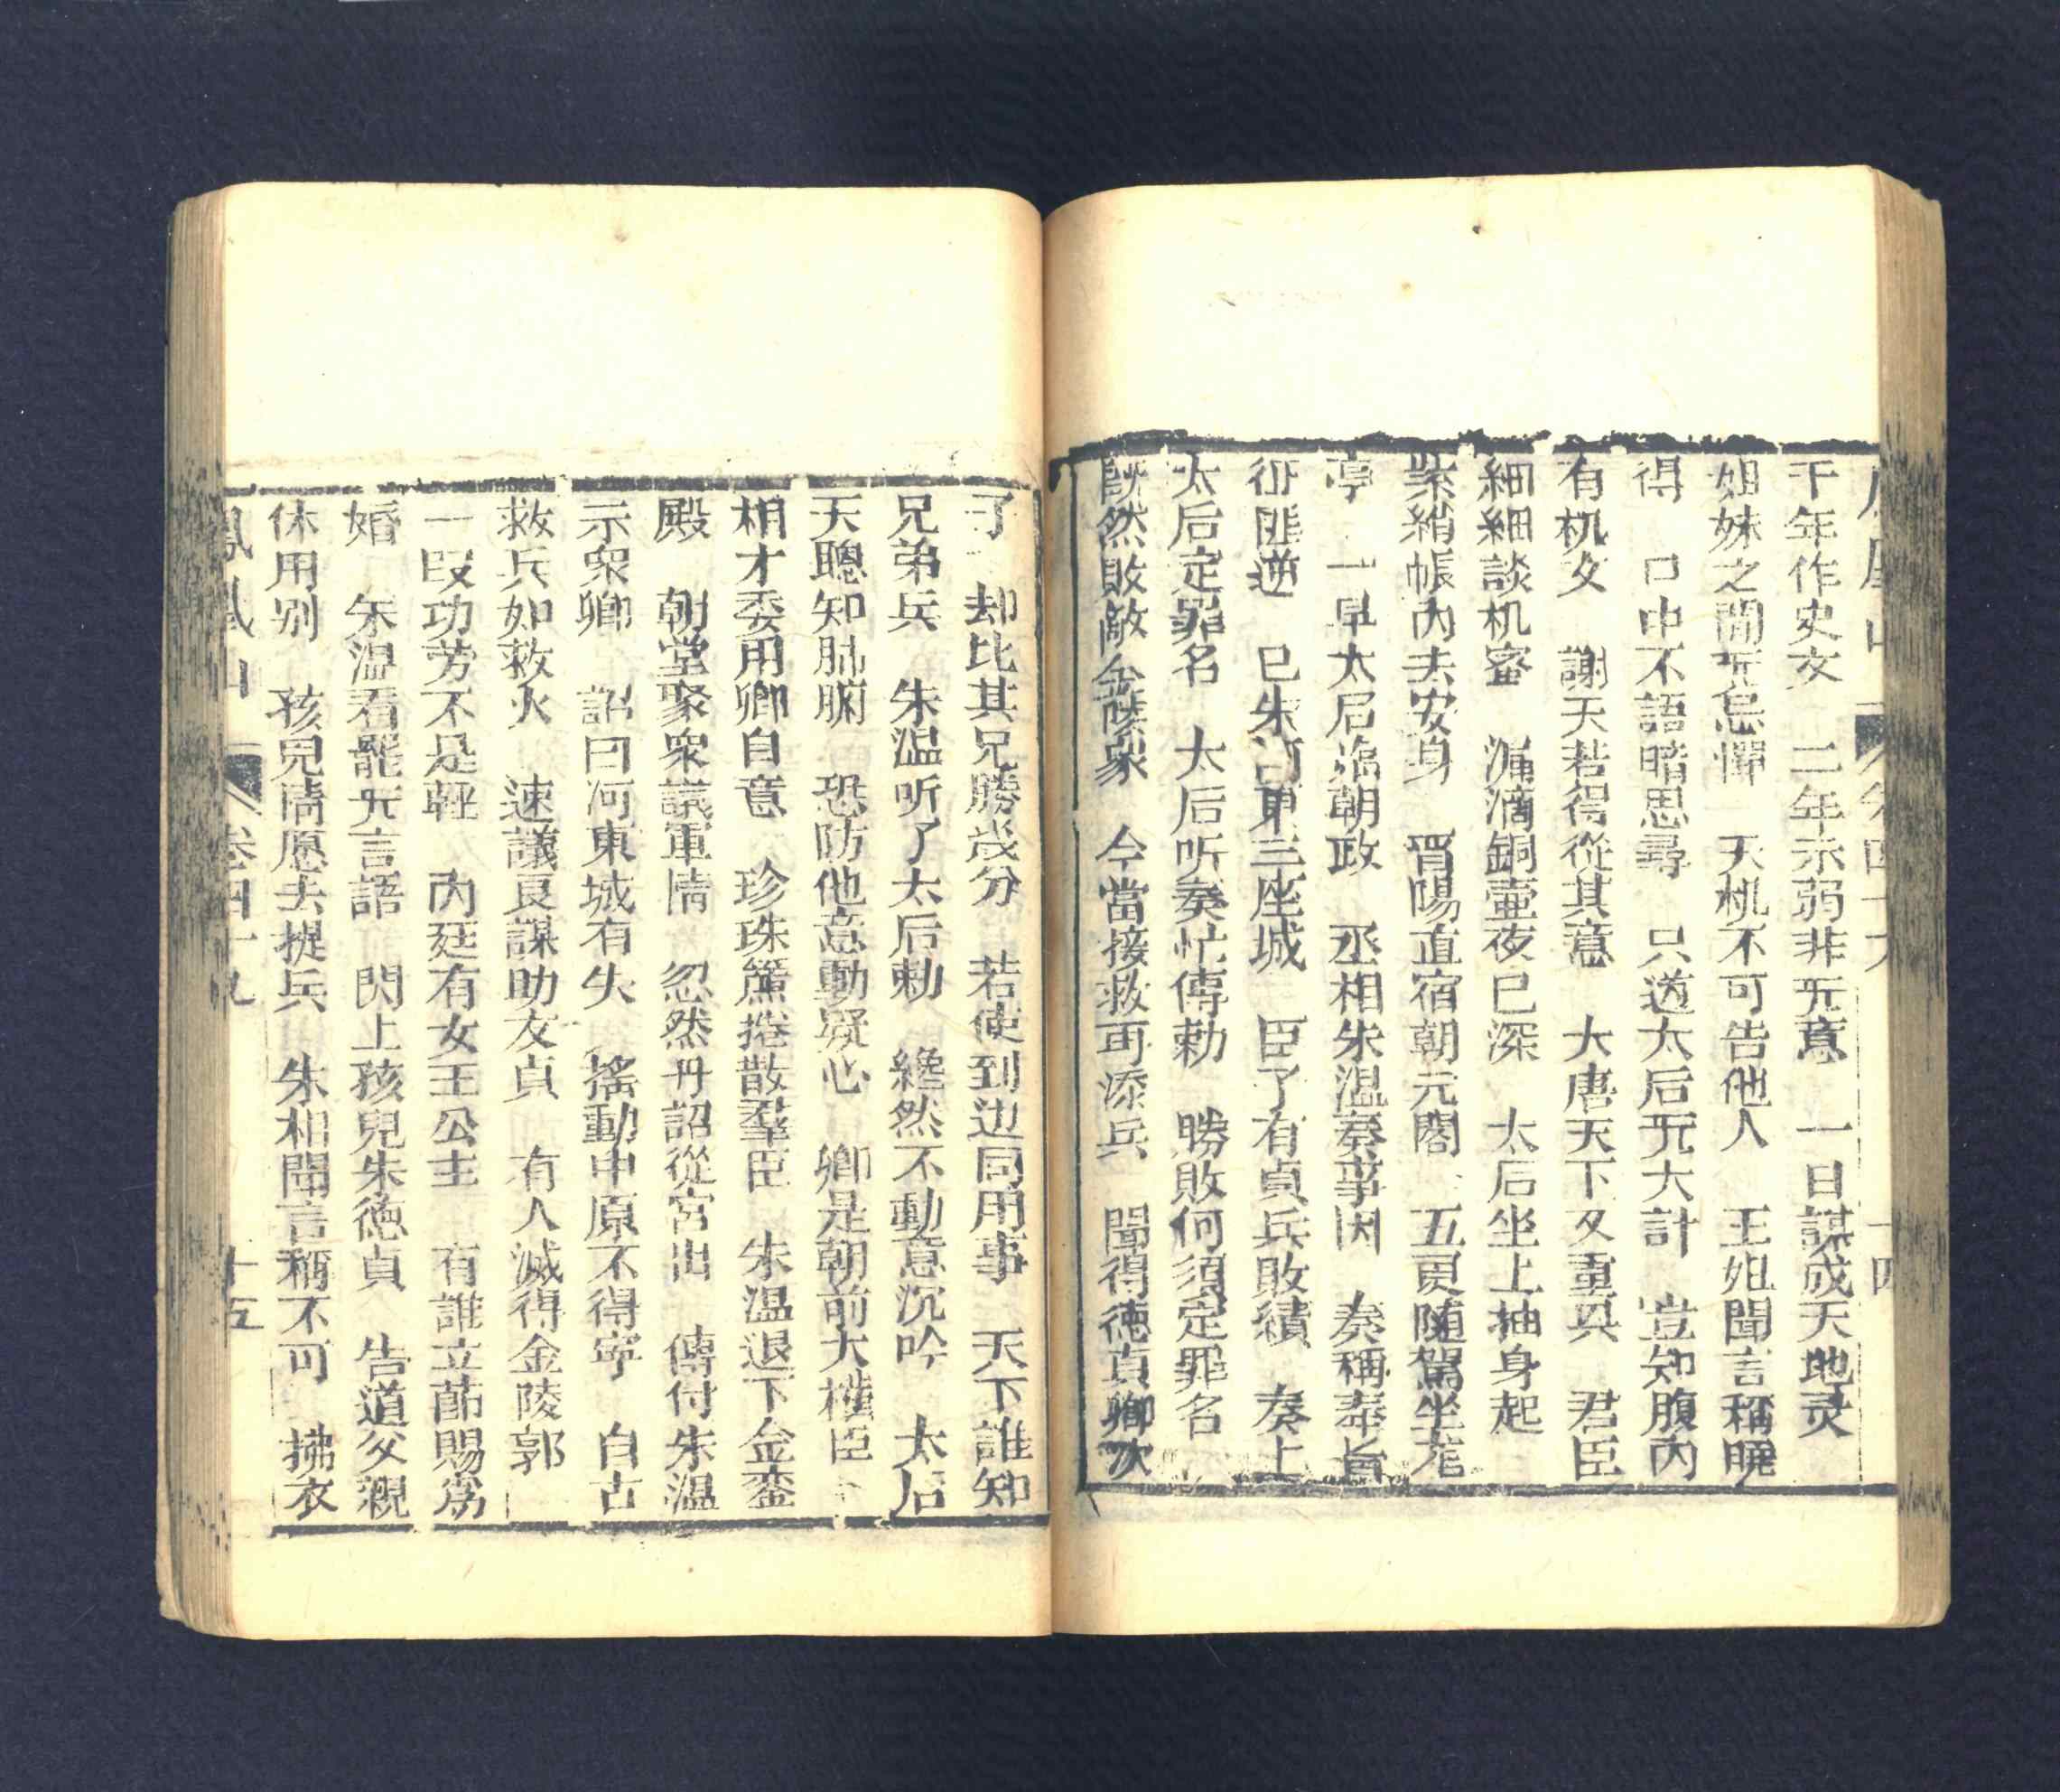 鳳凰山 卷四十九 十四
千年作史文　二年示弱非旡意　一日謀成天地灵
姐妹之間旡忌憚　天机不可告他人　王姐聞言稱曉
得　口中不語暗思尋　只道太后旡大計　豈知腹内
有机文　謝天若得從其意　大唐天下又重兴　君臣
細細談机密　漏滴銅壷夜已深　太后坐上抽身起
紫綃帳内去安身　胥陽直宿朝元閣　五更随駕坐龙
亭　一早太后臨朝政　丞相朱温奏事因　奏稱奉旨
征匪逆　已失河東三座城　臣了有貞兵敗績　奏上
太后定罪名　太后听奏忙傳勅　勝敗何須定罪名
既然敗敵金陵家　今當接救再添兵　聞得徳貞卿次
了　却比其兄勝㡬分　若使到边同用事　天下誰知
兄弟兵　朱温听了太后勅　纔然不動意沉吟　太后
天聰知肺腑　恐防他意動疑心　卿是朝前大權臣
相才委用卿自意　珍珠簾捲散羣臣　朱温退下金銮
殿　朝堂聚衆議軍情　忽然丹詔從宮出　傳付朱温
示衆卿　詔曰河東城有失　搖動中原不得寧　自古
救兵如救火　速議良謀助友貞　有人滅得金陵郭
一叚功劳不是輕　内廷有女王公主　有誰立莭賜為
婚　朱温看罷旡言語　閃上孩兒朱徳貞　告道父親
休用别　孩兒情愿去提兵　朱相聞言稱不可　拂衣
鳳凰山 卷四十九 十五